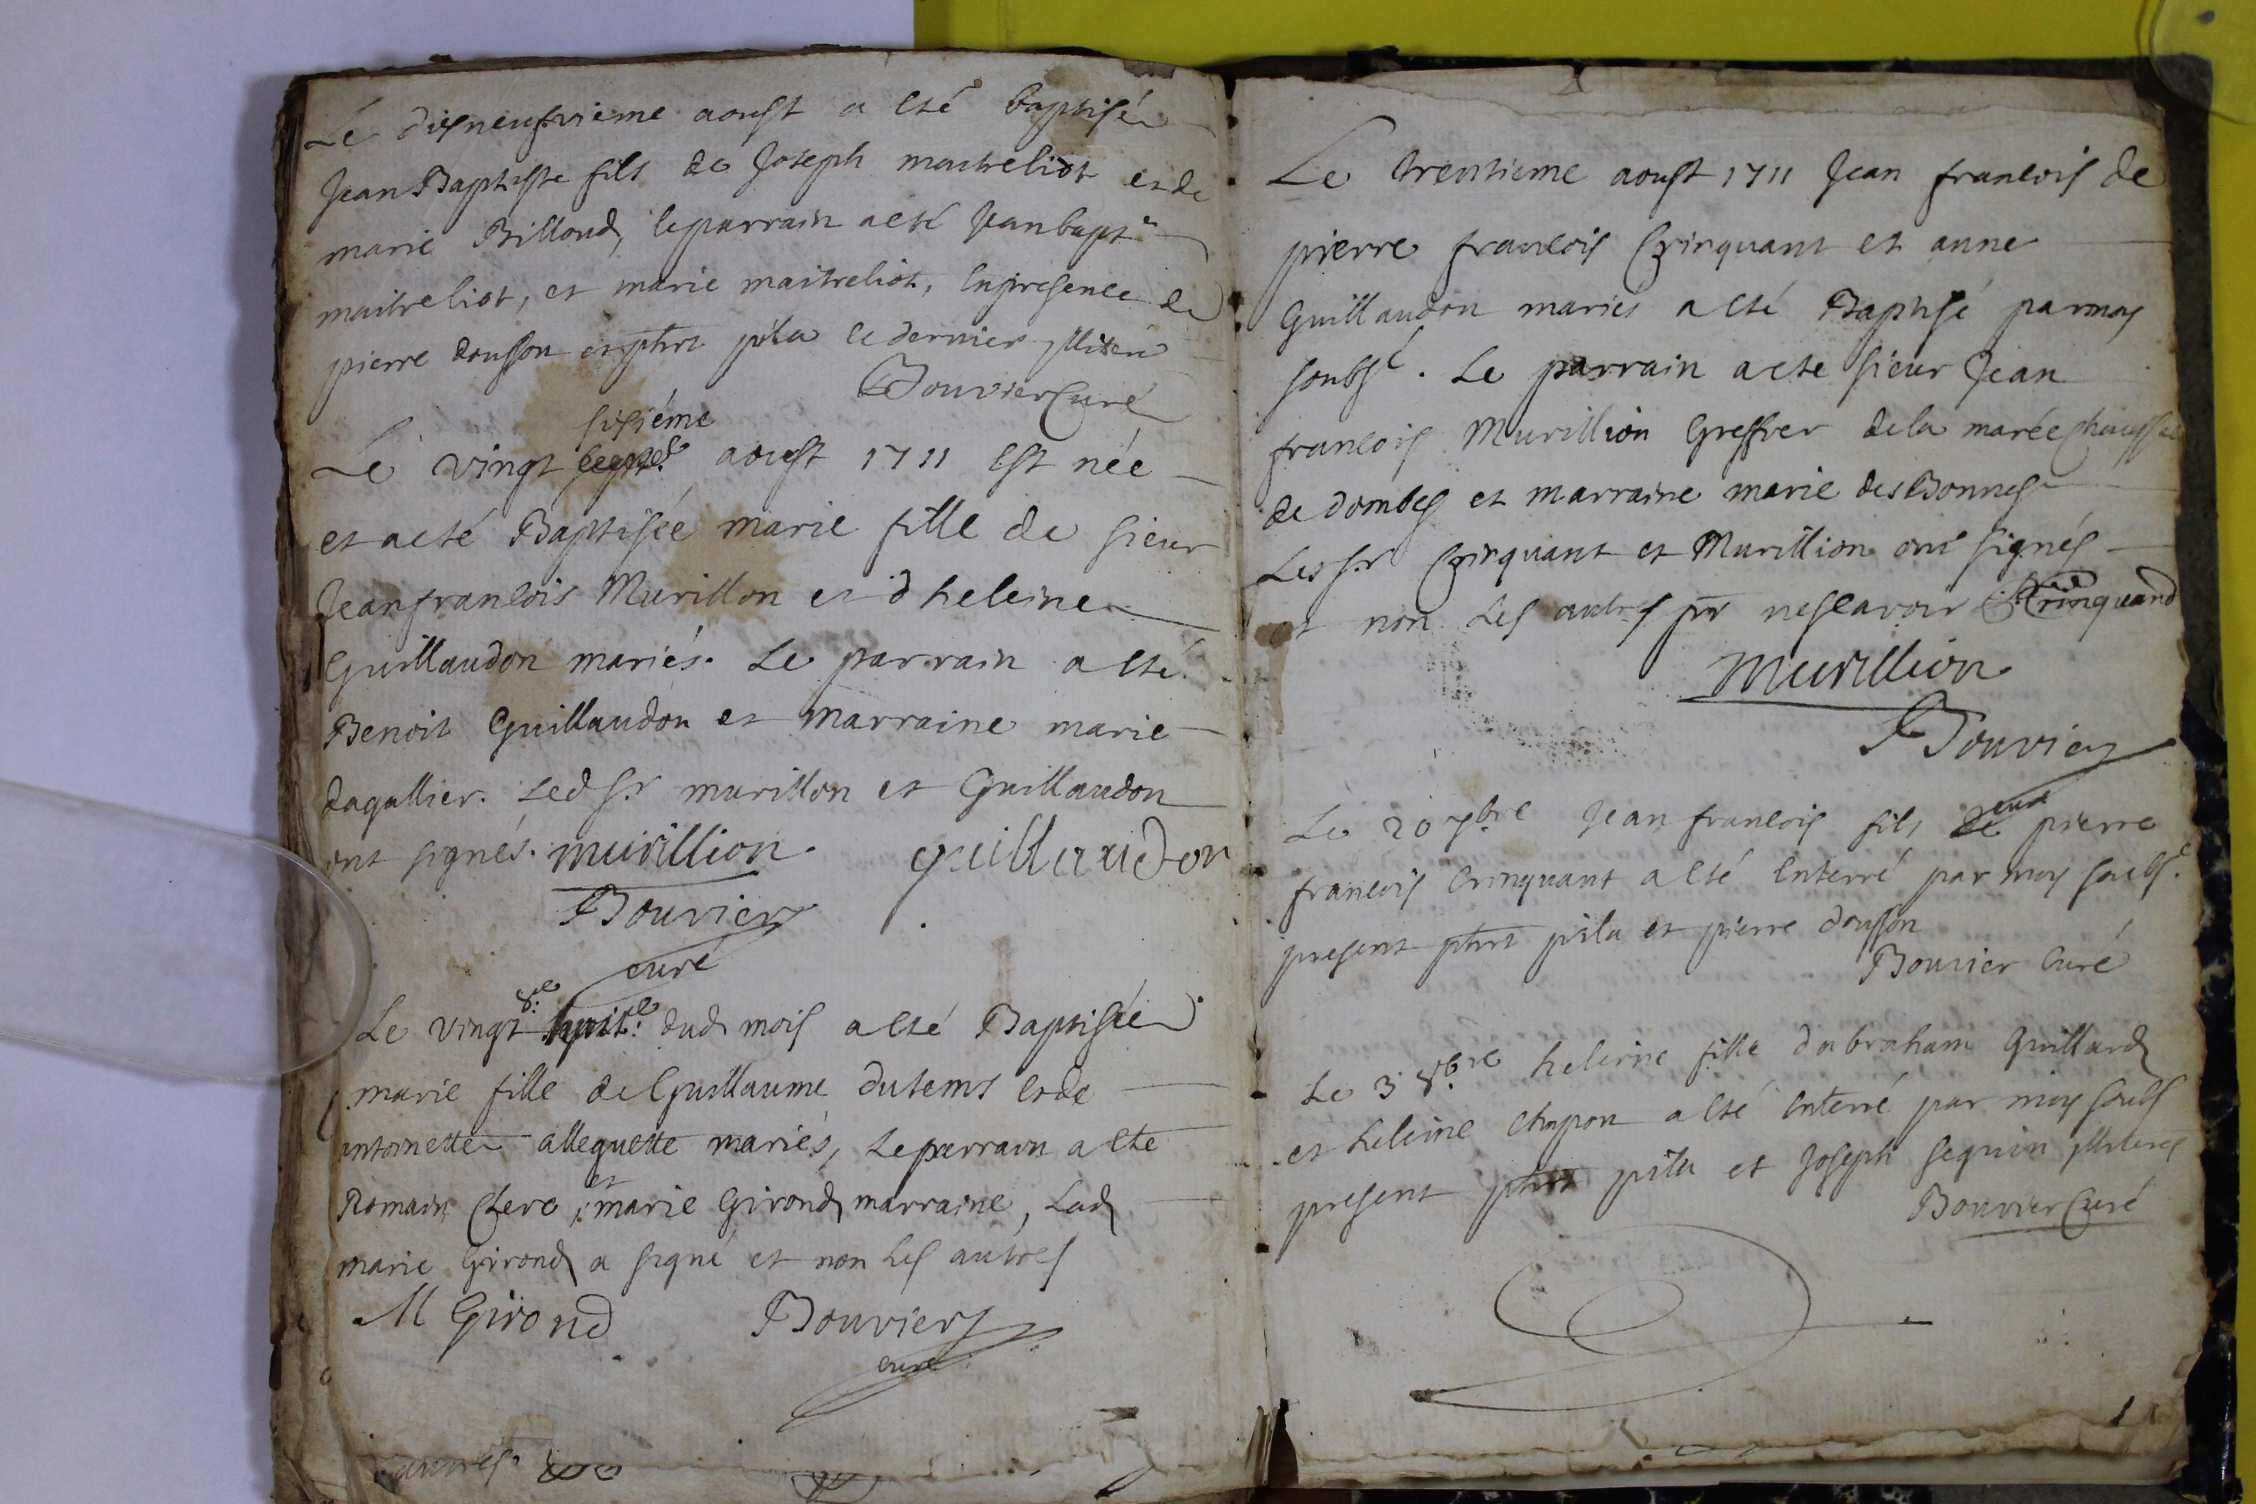 Le disneufvieme aoust a esté baptisée
Jean Baptiste fils de Joseph maitreliot et de
marie Billoud, le parrain a esté Jean bapt.e
maitreliot, et marie maitreliot, en presence de
pierre dousson et phrt pila ce dernier
Bouvier Curé
sisiéme
Le vingt aoust 1711 est née
et a eté Baptisée marie fille de sieur
Jean francois Murillon et d heleine
Guillaudon mariés. Le parrain a esté
Benoit Guillaudon et marraine marie
dagallier. Led sr murillon et Guillaudon
ont signés. murillion guillaudon
Bouvier
curé
8.e
Le vingt huit.e dud mois a esté Baptisée
marie fille de Guillaume dutems et de
antoinette allequette mariés, le parrain a esté
et
Romain Clerc, marie Girond marraine, lad
marie Girond a signé et non les autres
M Girond Bouvier
curé
Le trentieme aoust 1711 Jean francois de
pierre francois Crinquant et anne
Guillaudon mariés a esté Baptisé par moy
soubsé. Le parrain a esté sieur Jean
francois Murillion Greffier de la marée chaussée
de dombes et marraine marie desBonnes
Les sr Crinquant et Murillion ont signés
et non les autres pr ne scavoir Crinquand
Murillion
Bouvier
curé
Le 20 7bre Jean francois fils de pierre
francois Crinquant a esté enterré par moy soubs.é
present phrt pila et pierre dousson
Bouvier Curé
Le 3 8bre heleine fille d abraham Guillard
et heleine Chapon a esté enterré par moy soubs
present phrt pila et Joseph sequin
Bouvier Curé